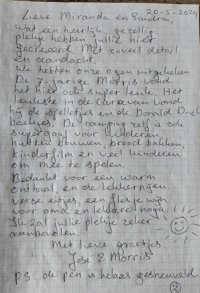 20-5-2024
Lieve Miranda en Sandra,
wat een heerlijk, gezellig
plekje hebben jullie hier
gecreëerd. Met zoveel detail
en aandacht,
we hebben onze ogen uitgekeken
De 7 jarige Morris vond
het hier ook super leuk. Het
leukste in de caravan vond
hij de spelletjes en de Donald Duck
boekjes. De camping zelf is ook
super gaaf voor kinderen
hutten bouwen, brood bakken,
kinderfilm en veel kinderen
om mee te spelen.
Bedankt voor een warm
onthaal, en de lekkernijen.
verse eitjes, een flesje wijn
voor oma en lekkere noga!!!
Ik zal jullie plekje zeker
aanbevelen.
Met lieve groetjes
José & Morris
PS: de pen is helaas gesneuveld